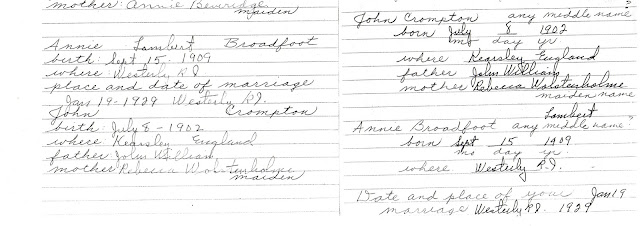 mother: Annie Beveridge
maiden
Annie Lambert Broadfoot
birth: Sept 15, 1909
where: Westerly R.I.
place and date of marriage
Jan 19-1929 Westerly R.I.
John Crompton
birth: July 8-1902
where: Kearsley England
father John William
mother Rebecca Wolstenholme
maiden
John Crompton any middle name
born July 8 1902
mo day yr
where Kearsley England
father John William
mother Rebecca Wolstenholme
maiden name
Lambert
Annie Broadfoot any middle name?
born Sept 15 1909
mo day yr
where Westerly R.I.
Date and place of your Jan 19
marriage Westerly R.I. 1929